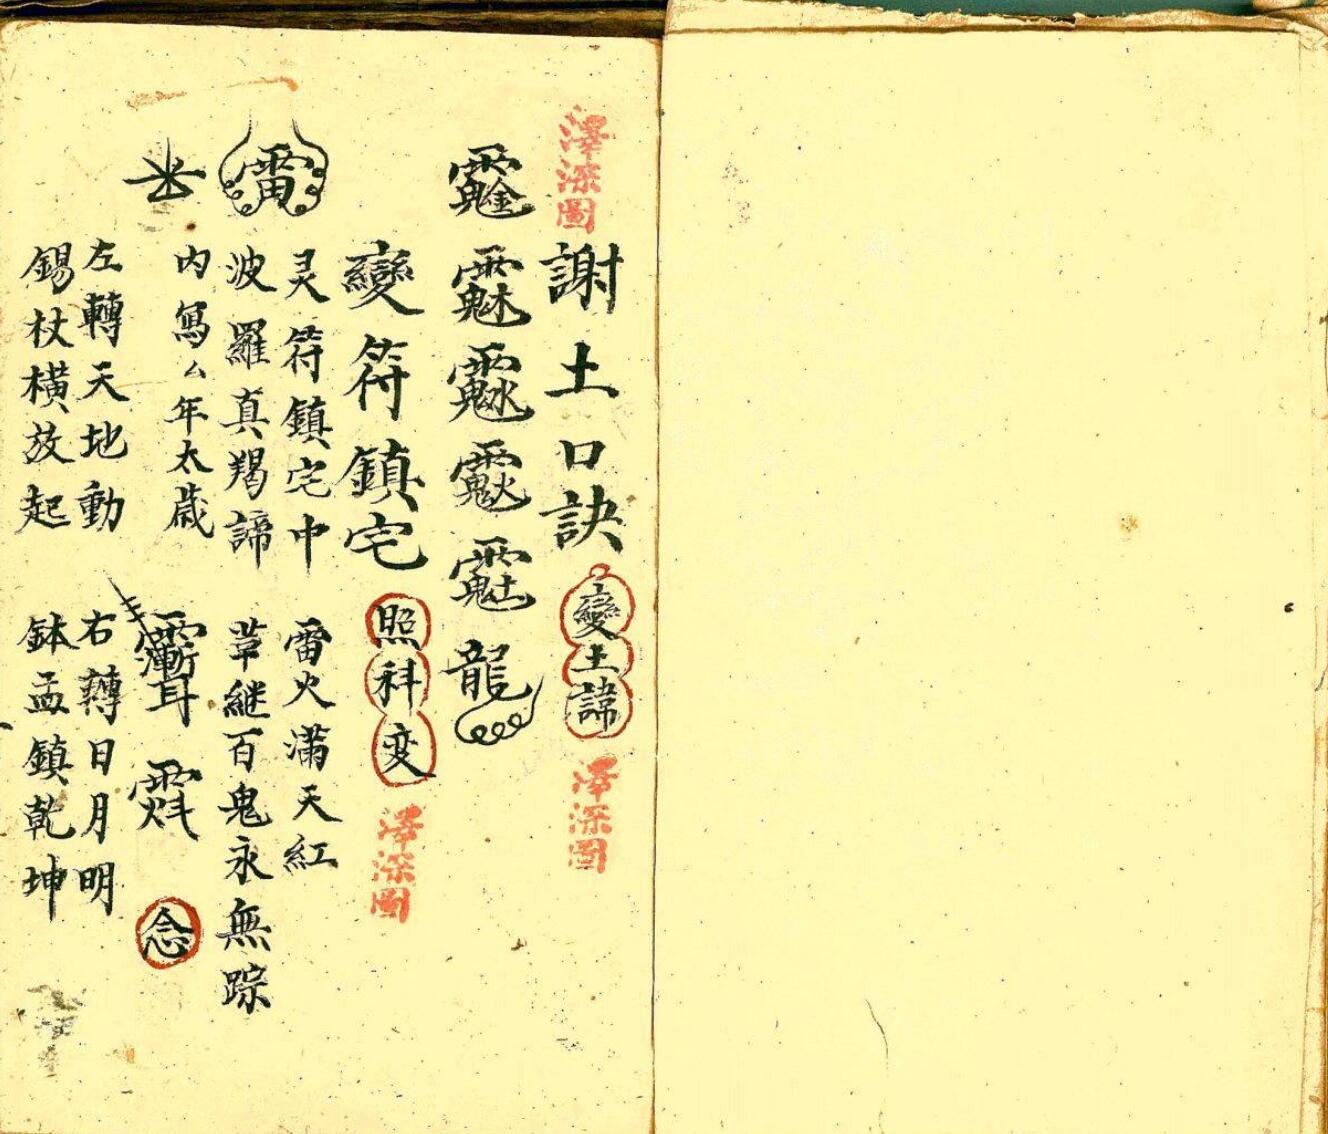 澤深圖
謝土口訣
變土諱
澤深圖
龍
變符鎮宅
照科变
澤深圖
灵符鎮宅中 雷火满天紅
波羅真羯諦 草継百鬼永無踪
内寫厶年太歳
念
左轉天地動 右轉日月明
錫杖橫放起 鉢盂鎮乾坤